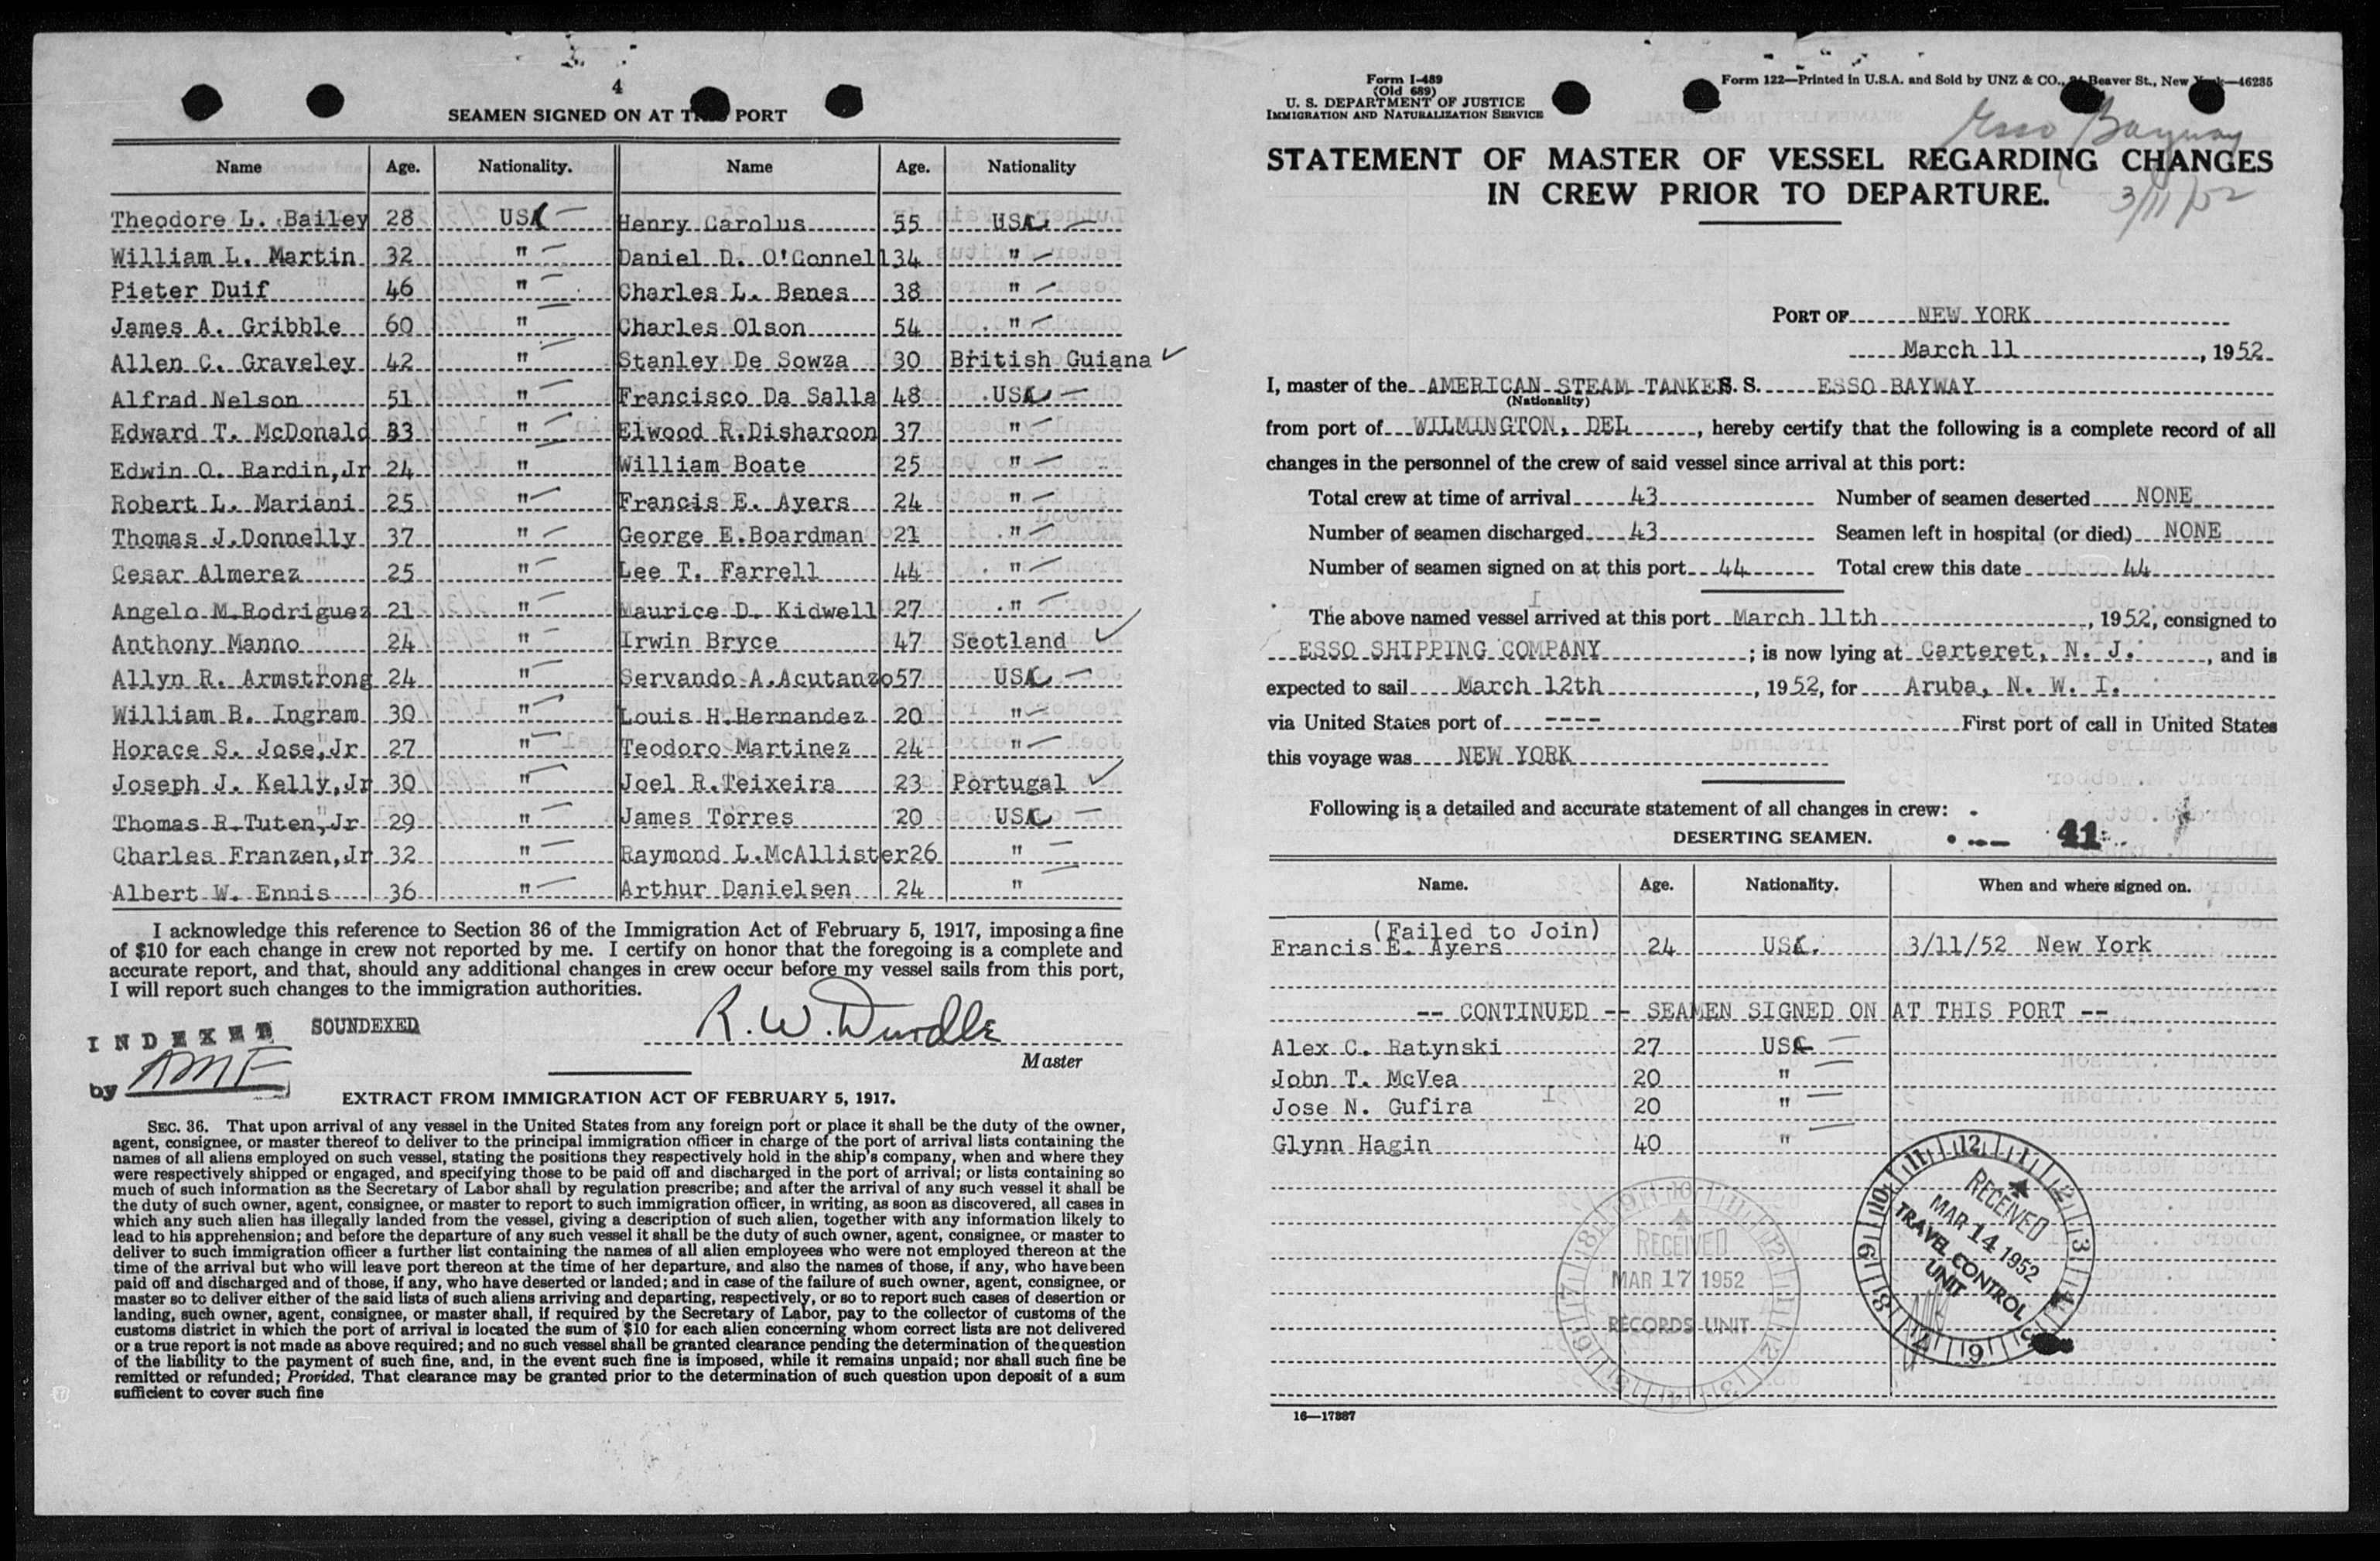 4
SEAMEN SIGNED ON AT THIS PORT
Name Age. Nationality. Name Age. Nationality
Theodore L. Bailey 28 USA Henry Carolus 55 USA
William L. Martin 32 " Daniel D. O'Connell 34 "
Pieter Duif 46 " Charles L. Benes 38 "
James A. Gribble 60 " Charles Olson 54 "
Allen C. Graveley 42 " Stanley De Sowza 30 British Guiana ✓
Alfrad Nelson 51 " Francisco Da Salla 48 USA
Edward T. McDonald 33 " Elwood R.Disharoon 37 "
Edwin O. Rardin,Jr 24 " William Boate 25 "
Robert L. Mariani 25 " Francis E. Ayers 24 "
Thomas J.Donnelly 37 " George E.Boardman 21 "
Cesar Almerez 25 " Lee T. Farrell 44 "
Angelo M.Rodriguez 21 " Maurice D. Kidwell 27 "
Anthony Manno 24 " Irwin Bryce 47 Scotland ✓
Allyn R. Armstrong 24 " Servando A.Acutanzo 57 USA
William B. Ingram 30 " Louis H.Hernandez 20 "
Horace S. Jose,Jr 27 " Teodoro Martinez 24 "
Joseph J. Kelly,Jr 30 " Joel R.Teixeira 23 Portugal ✓
Thomas R.Tuten,Jr 29 " James Torres 20 USA
Charles Franzen,Jr 32 " Raymond L.McAllister 26 "
Albert W. Ennis 36 " Arthur Danielsen 24 "
I acknowledge this reference to Section 36 of the Immigration Act of February 5, 1917, imposing a fine
of $10 for each change in crew not reported by me. I certify on honor that the foregoing is a complete and
accurate report, and that, should any additional changes in crew occur before my vessel sails from this port,
I will report such changes to the immigration authorities.
INDEXED SOUNDEXED
R. W. Durdle
Master
by AMF
EXTRACT FROM IMMIGRATION ACT OF FEBRUARY 5, 1917.
SEC. 36. That upon arrival of any vessel in the United States from any foreign port or place it shall be the duty of the owner,
agent, consignee, or master thereof to deliver to the principal immigration officer in charge of the port of arrival lists containing the
names of all aliens employed on such vessel, stating the positions they respectively hold in the ship's company, when and where they
were respectively shipped or engaged, and specifying those to be paid off and discharged in the port of arrival; or lists containing so
much of such information as the Secretary of Labor shall by regulation prescribe; and after the arrival of any such vessel it shall be
the duty of such owner, agent, consignee, or master to report to such immigration officer, in writing, as soon as discovered, all cases in
which any such alien has illegally landed from the vessel, giving a description of such alien, together with any information likely to
lead to his apprehension; and before the departure of any such vessel it shall be the duty of such owner, agent, consignee, or master to
deliver to such immigration officer a further list containing the names of all alien employees who were not employed thereon at the
time of the arrival but who will leave port thereon at the time of her departure, and also the names of those, if any, who have been
paid off and discharged and of those, if any, who have deserted or landed; and in case of the failure of such owner, agent, consignee, or
master so to deliver either of the said lists of such aliens arriving and departing, respectively, or so to report such cases of desertion or
landing, such owner, agent, consignee, or master shall, if required by the Secretary of Labor, pay to the collector of customs of the
customs district in which the port of arrival is located the sum of $10 for each alien concerning whom correct lists are not delivered
or a true report is not made as above required; and no such vessel shall be granted clearance pending the determination of the question
of the liability to the payment of such fine, and, in the event such fine is imposed, while it remains unpaid; nor shall such fine be
remitted or refunded; Provided, That clearance may be granted prior to the determination of such question upon deposit of a sum
sufficient to cover such fine
Form I-489
(Old 689)
U. S. DEPARTMENT OF JUSTICE
IMMIGRATION AND NATURALIZATION SERVICE
Form 122—Printed in U.S.A. and Sold by UNZ & CO., 24 Beaver St., New York—46235
Esso Bayway
3/11/52
STATEMENT OF MASTER OF VESSEL REGARDING CHANGES
IN CREW PRIOR TO DEPARTURE.
PORT OF NEW YORK
March 11, 1952
I, master of the AMERICAN STEAM TANKER S. S. ESSO BAYWAY
(Nationality)
from port of WILMINGTON, DEL, hereby certify that the following is a complete record of all
changes in the personnel of the crew of said vessel since arrival at this port:
Total crew at time of arrival 43 Number of seamen deserted NONE
Number of seamen discharged 43 Seamen left in hospital (or died) NONE
Number of seamen signed on at this port 44 Total crew this date 44
The above named vessel arrived at this port March 11th, 1952, consigned to
ESSO SHIPPING COMPANY; is now lying at Carteret, N. J., and is
expected to sail March 12th, 1952, for Aruba, N. W. I.
via United States port of ---- First port of call in United States
this voyage was NEW YORK
Following is a detailed and accurate statement of all changes in crew:
DESERTING SEAMEN. 41
Name. Age. Nationality. When and where signed on.
(Failed to Join)
Francis E. Ayers 24 USA. 3/11/52 New York
-- CONTINUED -- SEAMEN SIGNED ON AT THIS PORT --
Alex C. Ratynski 27 USA
John T. McVea 20 "
Jose N. Gufira 20 "
Glynn Hagin 40 "
RECEIVED
MAR 14 1952
TRAVEL CONTROL
UNIT
RECEIVED
MAR 17 1952
RECORDS UNIT
16—17887